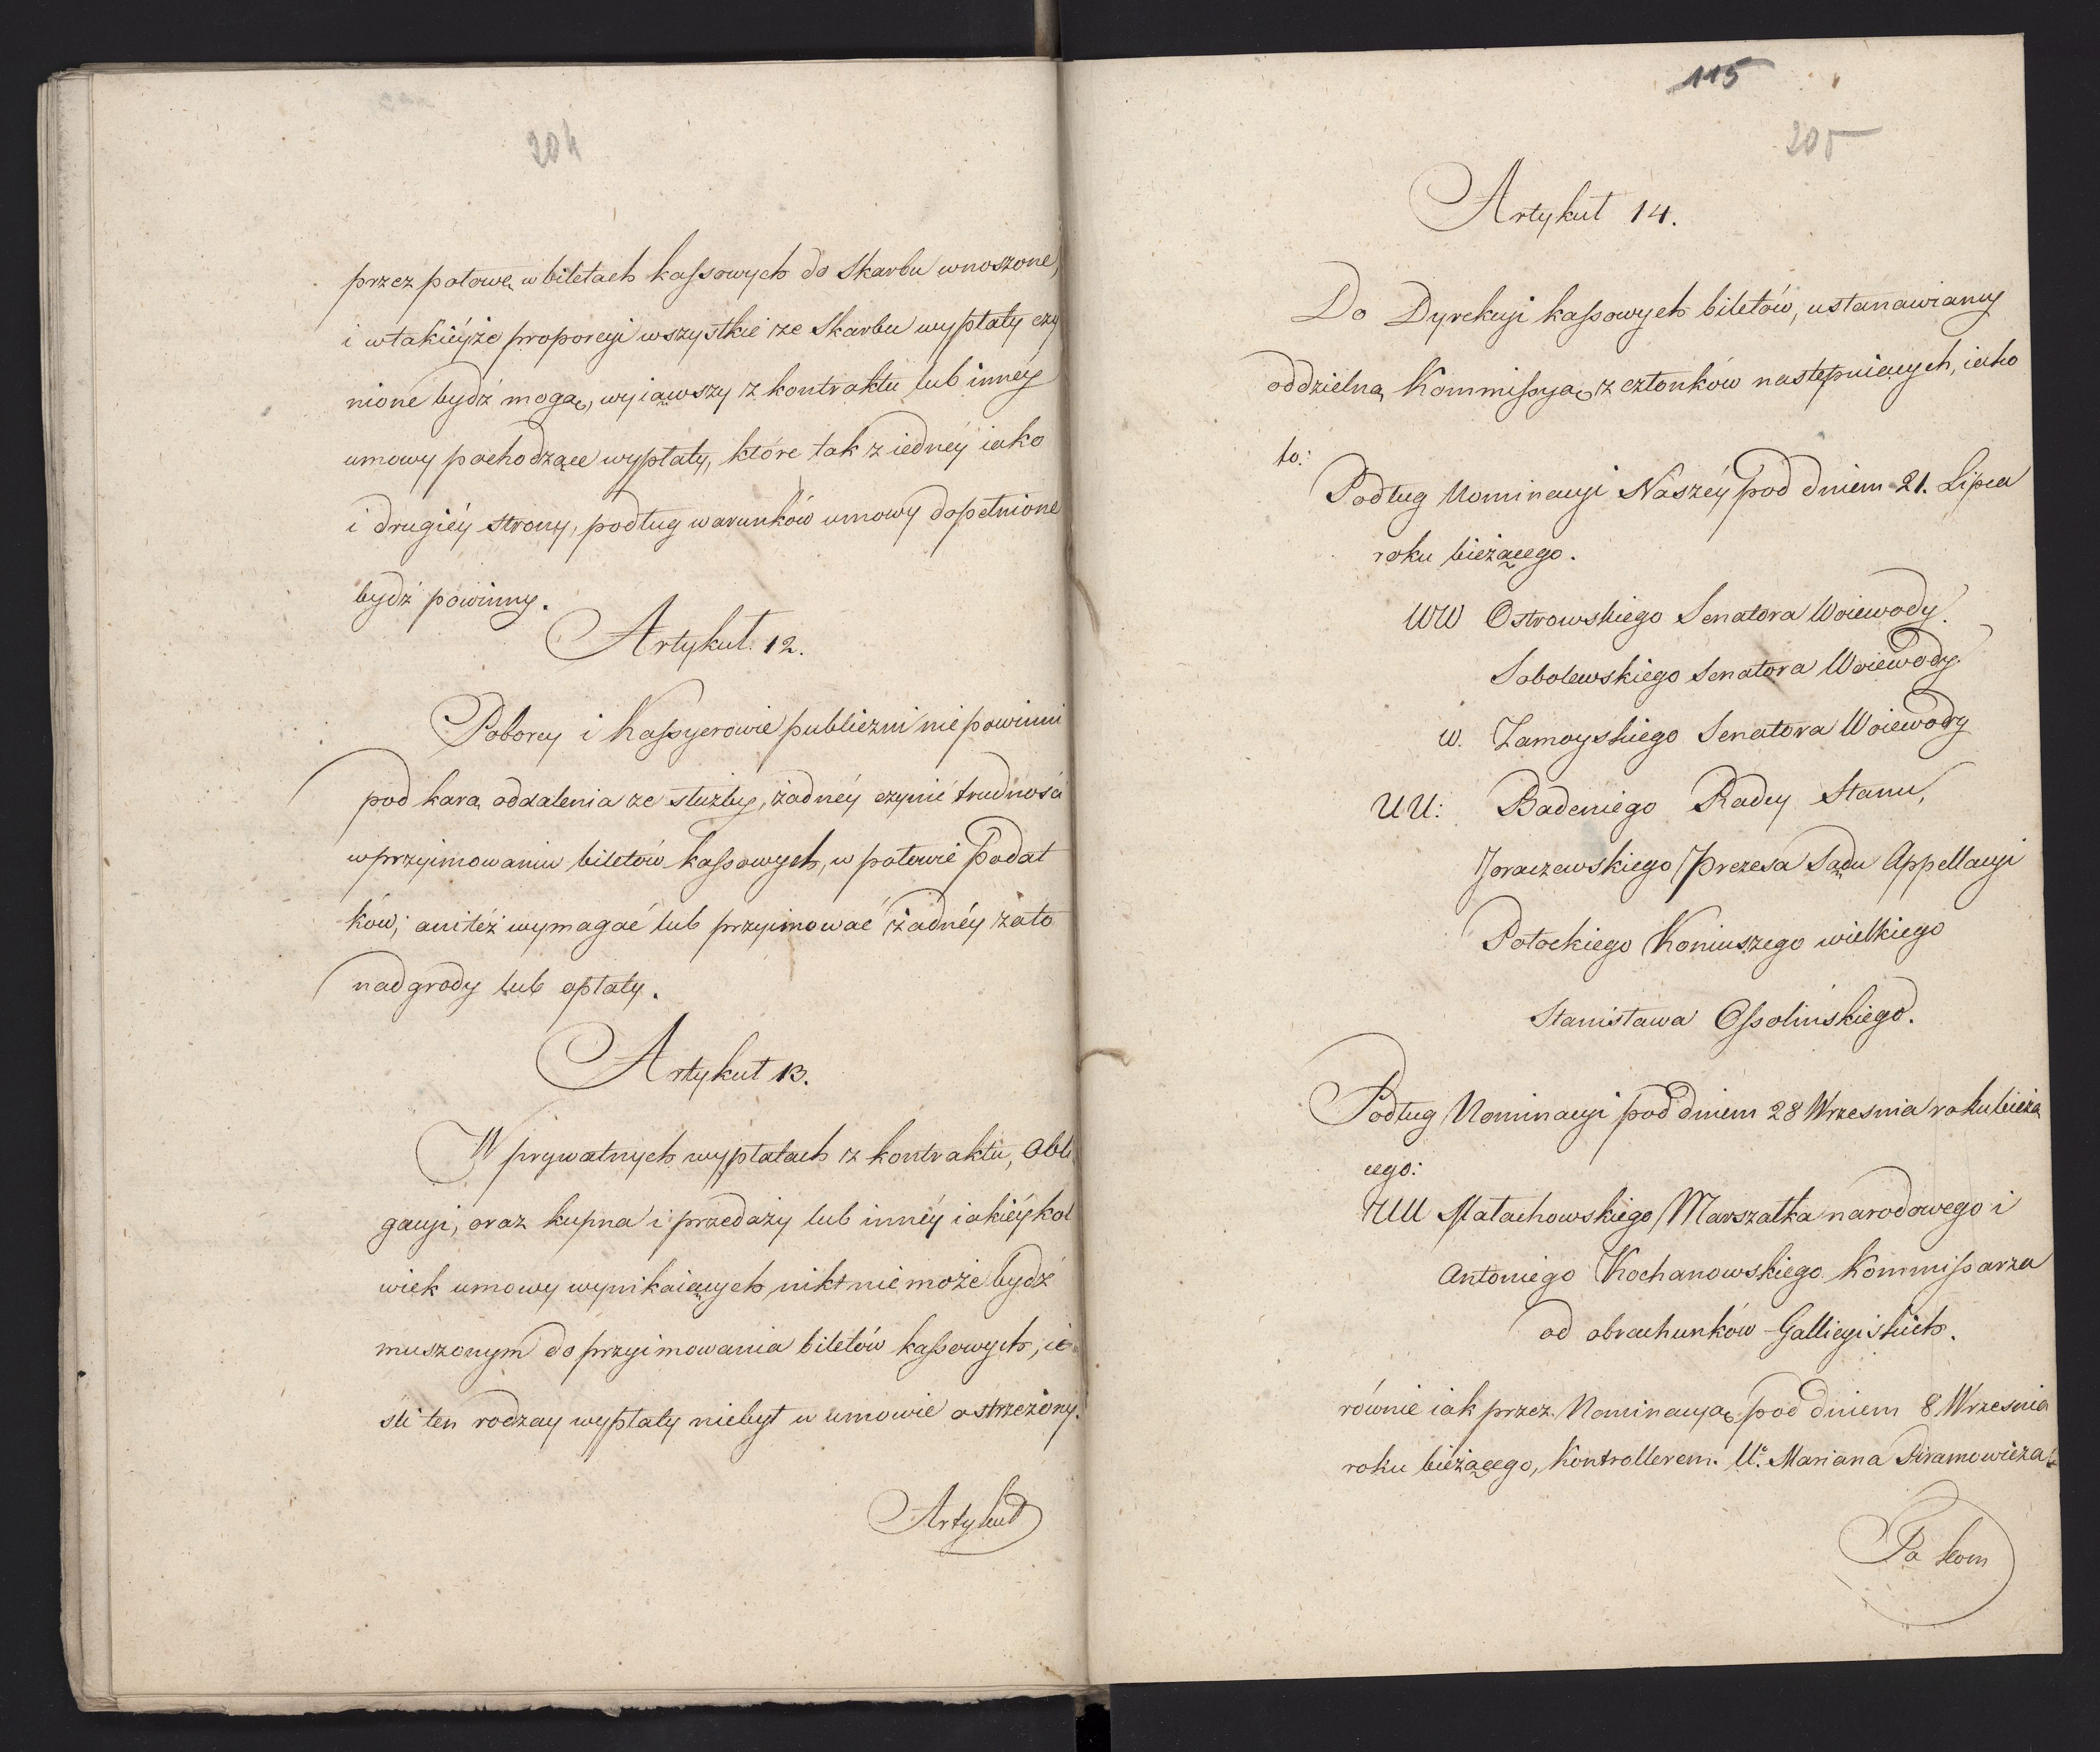 204
przez połowę w biletach kassowych do Skarbu wnoszone,
i w takiéyże proporcyi wszystkie ze Skarbu wypłaty czy
nione bydź mogą, wyiąwszy z kontraktu lub innéy
umowy pochodzące wypłaty, które tak z iednéy iako
i drugiéy strony, podług warunków umowy dopełnione
bydź powinny.
Artykuł 12.
Poborcy i Kassyerowie publiczni nie powinni
pod karą oddalenia ze służby, żadnéy czynić trudności
w przyimowaniu biletów kassowych, w połowie Podat
ków; ani téż wymagać lub przyimować żadnéy za to
nadgrody lub opłaty.
Artykuł 13.
W prywatnych wypłatach z kontraktu, obli
gacyi, oraz kupna i przedaży lub innéy iakiéykol
wiek umowy wynikaiących nikt nie może bydź
muszonym do przyimowania biletów kassowych, ie
śli ten rodzay wypłaty niebył w umowie ostrzeżony.
Artykuł
115
205
Artykuł 14.
Do Dyrekcyi kassowych biletów, ustanawiamy
oddzielną Kommissyą z członków następuiących, iako
to:
Podług Nominacyi Naszéy pod dniem 21. Lipca
roku bieżącego.
WW Ostrowskiego Senatora Woiewody.
Sobolewskiego Senatora Woiewody.
W. Zamoyskiego Senatora Woiewody
UU: Badeniego Radcy Stanu,
Joraczewskiego Prezesa Sądu Appellacyi
Potockiego Koniuszego wielkiego
Stanisława Ossolińskiego.
Podług Nominacyi pod dniem 28 Wrzesnia roku bieżą
cego:
UU Małachowskiego Marszałka narodowego i
Antoniego Kochanowskiego Kommissarza
od obrachunków Gallicyiskich.
równie iak przez Nominacyą pod dniem 8 Wrzesnia
roku bieżącego, Kontrollerem. U. Mariana Piramowicza
Po kom